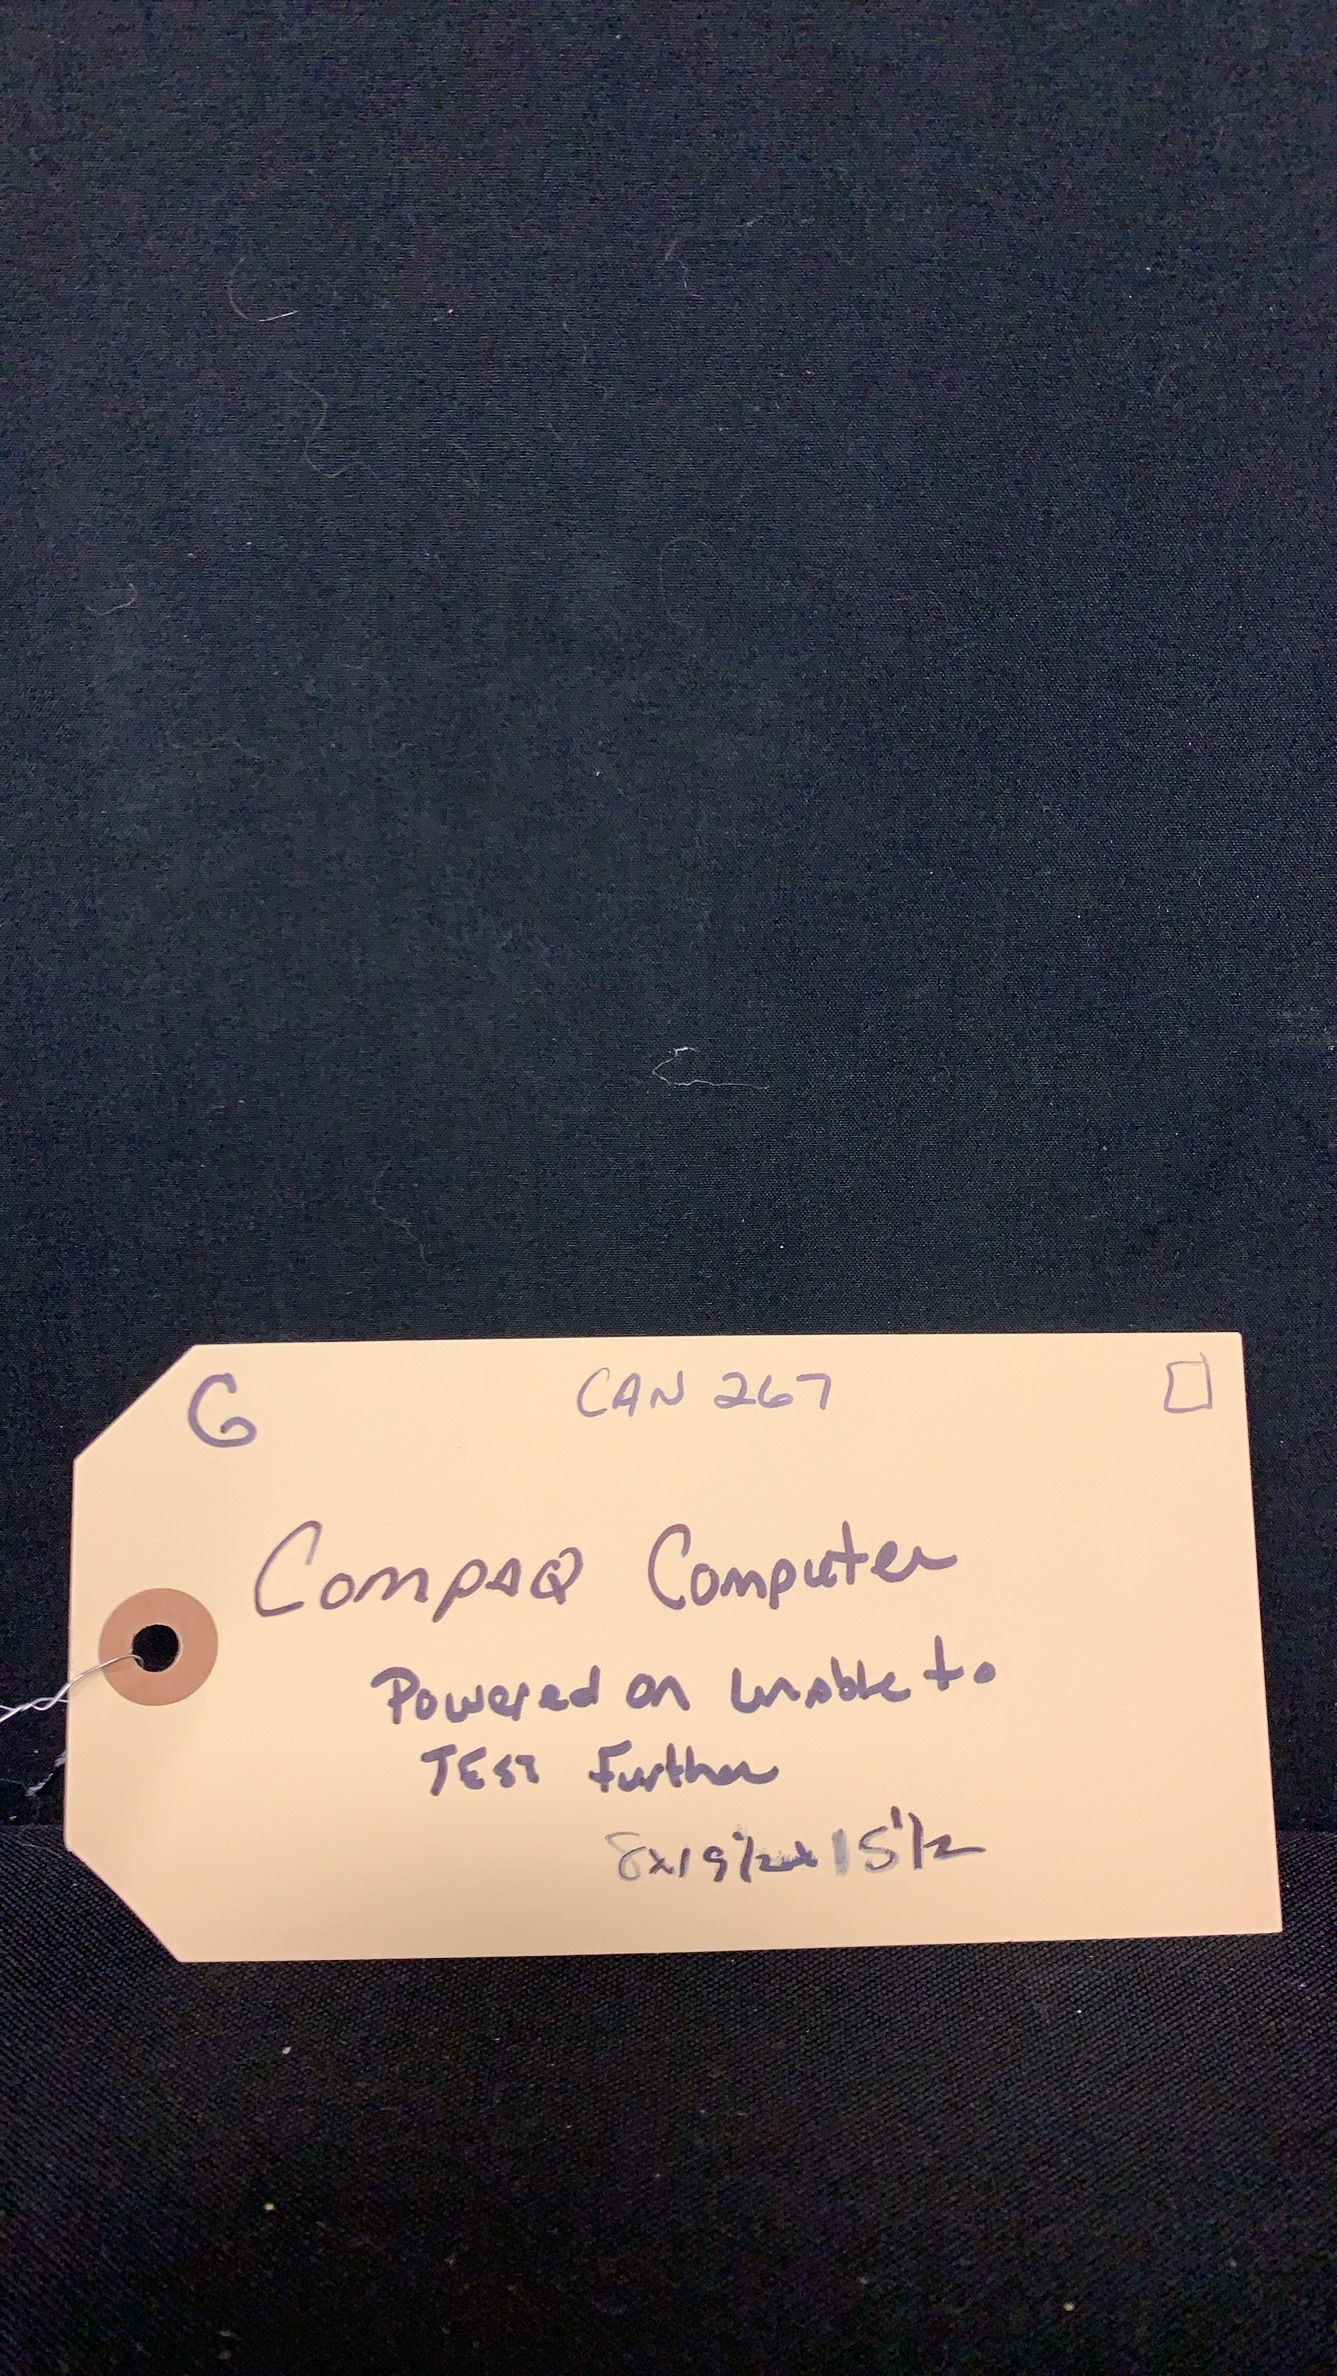 G CAN 267
Compaq Computer
Powered on unable to
TEST Further
8x19½x15½